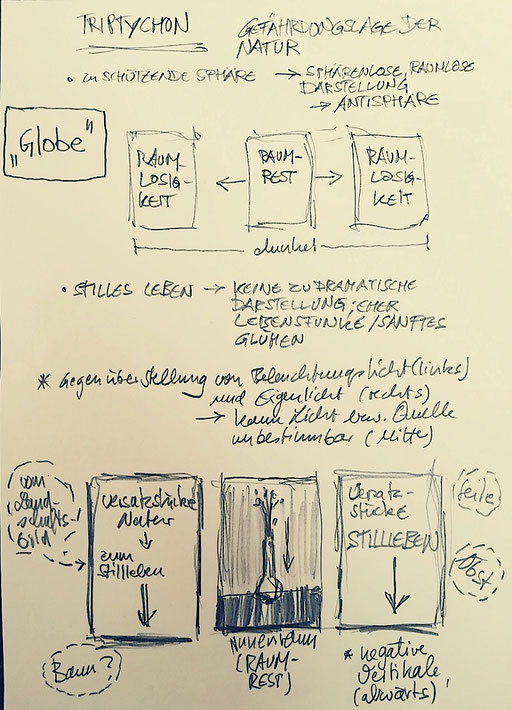 TRIPTYCHON
GEFÄHRDUNGSLAGE DER
NATUR
• ZU SCHÜTZENDE SPHÄRE → SPHÄRENLOSE, RAUMLOSE
DARSTELLUNG
→ ANTISPHÄRE
„Globe"
RAUM-
LOSIG-
KEIT
RAUM-
REST
RAUM-
LOSIG-
KEIT
dunkel
• STILLES LEBEN → KEINE ZU DRAMATISCHE
DARSTELLUNG; EHER
LEBENSFUNKE/SANFTES
GLÜHEN
* Gegenüberstellung von Beleuchtungslicht (links)
und Eigenlicht (rechts)
→ kaum Licht bzw. Quelle
unbestimmbar (Mitte)
vom
Land-
schafts-
bild
Versatzstücke
Natur
↓
zum
Stillleben
Baum?
Innenraum
(RAUM-
REST)
Versatz-
stücke
STILLLEBEN
Seile
Obst
* negative
Vertikale
(abwärts)!